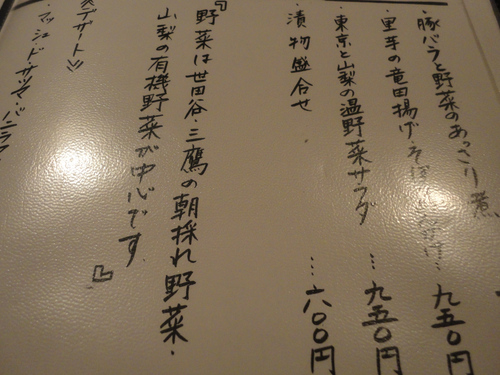 豚バラと野菜のあっさり煮 … 九五〇円
里芋の竜田揚げ・そば … 九五〇円
東京と山梨の温野菜サラダ … 九五〇円
漬物盛合せ … 六〇〇円
『野菜は世田谷・三鷹の朝採れ野菜・
山梨の有機野菜が中心です。』
《デザート》
・マッシュド・サツマ・バニラ